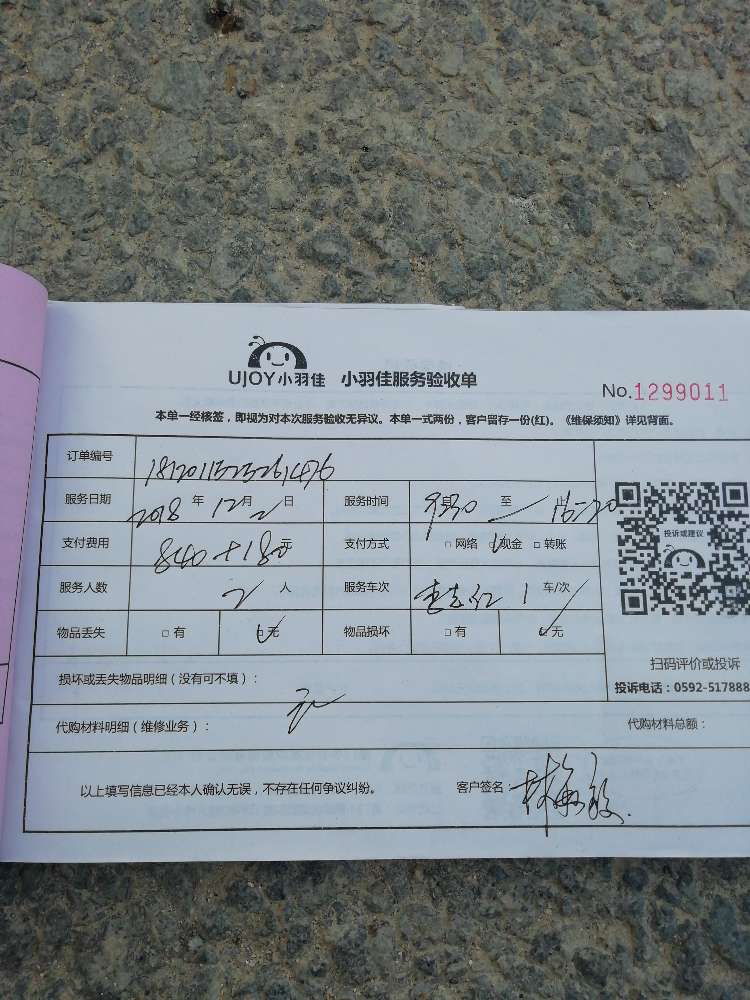 UJOY小羽佳 小羽佳服务验收单
No.1299011
本单一经核签，即视为对本次服务验收无异议。本单一式两份，客户留存一份(红)。《维保须知》详见背面。
订单编号
服务日期 2018 年 12 月 2 日 服务时间 自 至 止
支付费用 840+180 元 支付方式 □网络 □现金 □转账
服务人数 2 人 服务车次 1 车/次
物品丢失 □有 □无 物品损坏 □有 □无
投诉或建议
扫码评价或投诉
投诉电话：0592-517888
损坏或丢失物品明细（没有可不填）：
无
代购材料明细（维修业务）： 代购材料总额：
以上填写信息已经本人确认无误，不存在任何争议纠纷。 客户签名 林敏毅